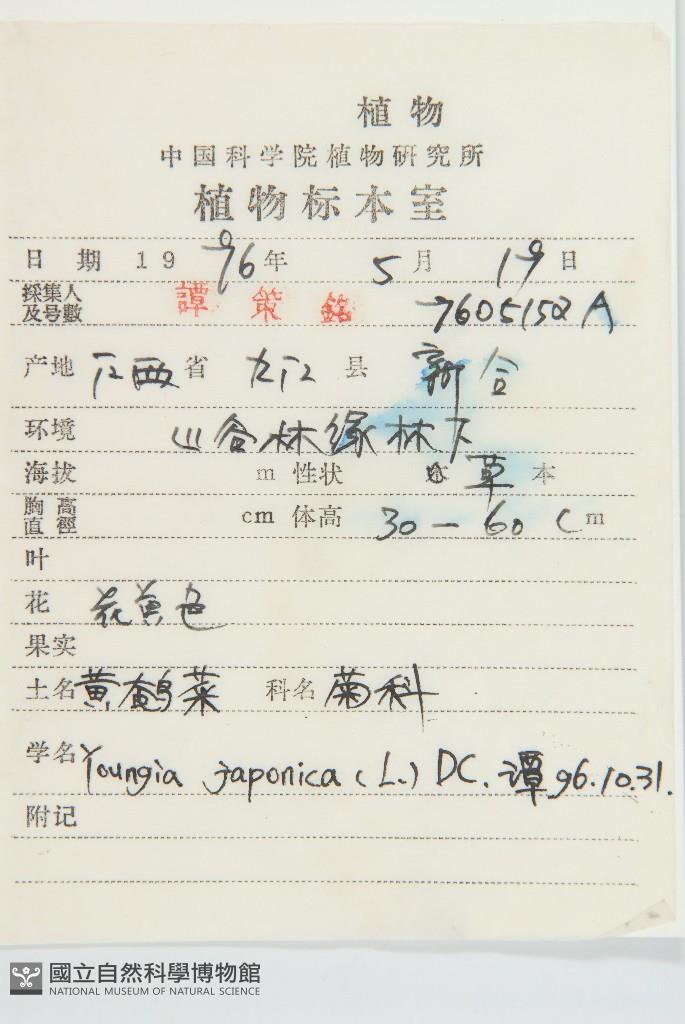 植物
中国科学院植物研究所
植物标本室
日期 1996年 5月 19日
採集人及号數 譚策銘 7605152A
产地 江西省 九江县 新合
环境 山谷林缘林下
海拔 m 性状 草本
胸高直徑 cm 体高 30—60 cm
叶
花 花黄色
果实
土名 黄鹤菜 科名 菊科
学名 Youngia japonica (L.) DC. 譚 96.10.31.
附记
國立自然科學博物館
NATIONAL MUSEUM OF NATURAL SCIENCE